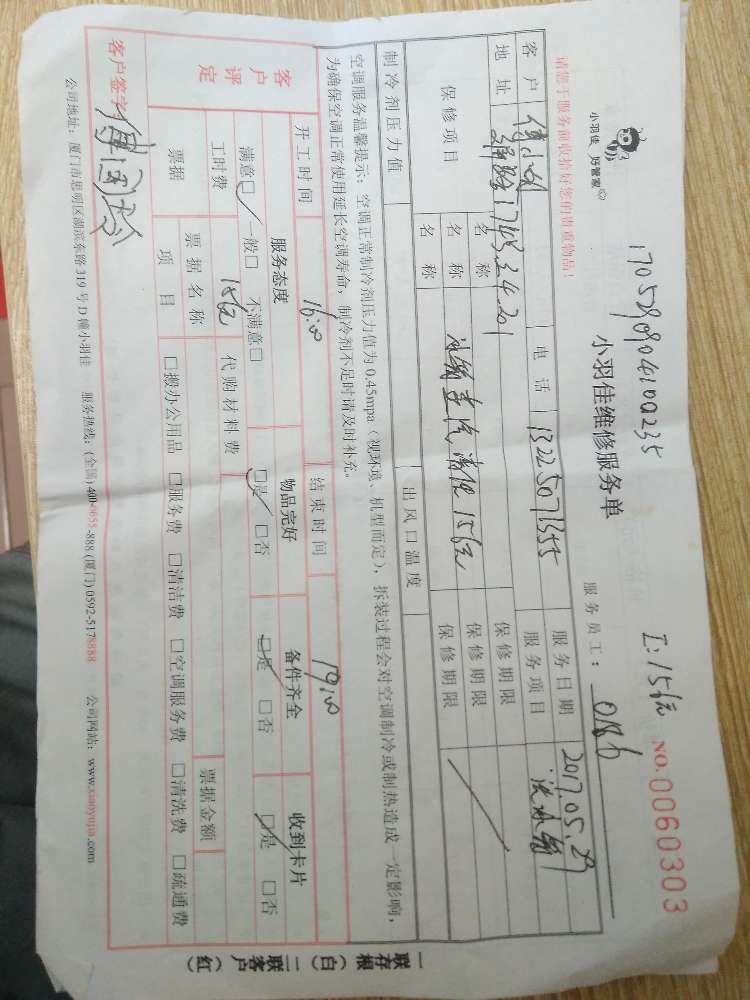 小羽佳 好管家
170529090410Q235
I:156元
NO.0060303
小羽佳维修服务单
请您于服务前收拾好您的贵重物品！
服务员工：
客户
电话 13225071355
服务日期 2017.05.29
地址
服务项目 洗冰箱
保修项目
名称
保修期限
名称
保修期限
名称
保修期限
制冷剂压力值
出风口温度
空调服务温馨提示：空调正常制冷剂压力值为0.45mpa（视环境、机型而定），拆装过程会对空调制冷或制热造成一定影响，
为确保空调正常使用延长空调寿命，制冷剂不足时请及时补充。
开工时间 16:00 结束时间 19:00
客户评定
服务态度 物品完好 备件齐全 收到卡片
满意☑ 一般□ 不满意□ ☑是 □否 ☑是 □否 ☑是 □否
工时费 156元 代购材料费
票据 票据名称 票据金额
项目 □搬办公用品 □服务费 □清洁费 □空调服务费 □清洗费 □疏通费
客户签字：
公司地址：厦门市思明区湖滨东路319号D幢小羽佳 服务热线：(全国)400-0655-888 (厦门)0592-5178888 公司网站：www.xiaoyujia.com
一联存根（白）二联客户（红）